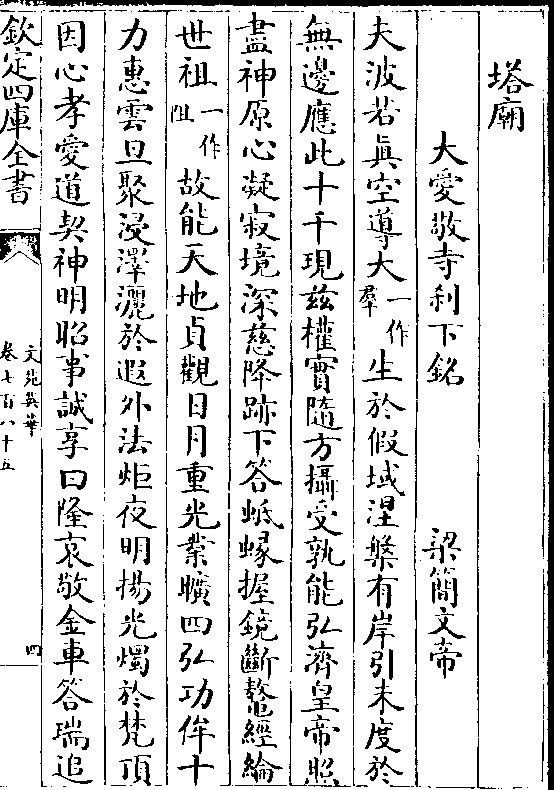 塔廟
大愛敬寺刹下銘 梁簡文帝
夫波若真空導大一作羣生於假域涅槃有岸引未度於
無邊應此十千現兹權實隨方攝受孰能弘濟皇帝照
盡神原心凝寂境深慈降跡下答蚳蝝握鏡斷鼇經綸
世祖一作阻故能天地貞觀日月重光業曠四弘功侔十
力惠雲旦聚浸澤灑於遐外法炬夜明揚光燭於梵頂
因心孝愛道契神明昭事誠享曰隆哀敬金車答瑞追
欽定四庫全書
文苑英華
卷七百八十五
四